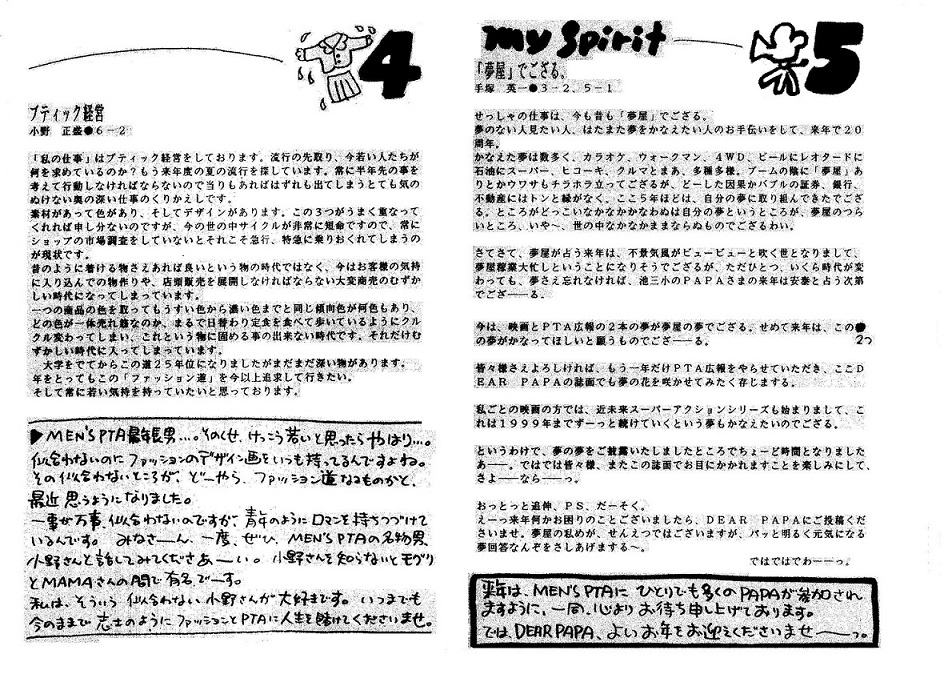 4
ブティック経営
小野 正盛●6-2
「私の仕事」はブティック経営をしております。流行の先取り、今若い人たちが
何を求めているのか?もう来年度の夏の流行を探しています。常に半年先の事を
考えて行動しなければならないので当りもあればはずれも出てしまうとても気の
ぬけない奥の深い仕事のくりかえしです。
素材があって色があり、そしてデザインがあります。この3つがうまく重なって
くれれば申し分ないのですが、今の世の中サイクルが非常に短命ですので、常に
ショップの市場調査をしていないとそれこそ急行、特急に乗りおくれてしまうの
が現状です。
昔のように着ける物さえあれば良いという物の時代ではなく、今はお客様の気持
に入り込んでの物作りや、店頭販売を展開しなければならない大変商売のむずか
しい時代になってしまっています。
一つの商品の色を取ってもうすい色から濃い色までと同じ傾向色が何色もあり、
どの色が一体売れ筋なのか、まるで日替わり定食を食べて歩いているようにクル
クル変わってしまい、これという物に固める事の出来ない時代です。それだけむ
ずかしい時代に入ってしまっています。
大学をでてからこの道25年位になりましたがまだまだ深い物があります。
年をとってもこの「ファッション道」を今以上追求して行きたい。
そして常に若い気持を持っていたいと思っております。
▶MEN'S PTA最年長男…。そのくせ、けっこう若いと思ったらやはり…。
似合わないのにファッションのデザイン画をいつも持ってるんですよね。
その似合わないところが、どーやら、ファッション道なるものかと、
最近思うようになりました。
一事が万事、似合わないのですが、青年のようにロマンを持ちつづけて
いるんです。 みなさーん、一度、ぜひ、MEN'S PTAの名物男、
小野さんと話してみてくださぁーい。小野さんを知らないとモグリ
とMAMAさんの間で有名でーす。
私は、そういう似合わない小野さんが大好きです。いつまでも
今のままで志士のようにファッションとPTAに人生を賭けてくださいませ。
my Spirit 5
「夢屋」でござる、
手塚 英一●3-2、5-1
せっしゃの仕事は、今も昔も「夢屋」でござる。
夢のない人見たい人、はたまた夢をかなえたい人のお手伝いをして、来年で20
周年。
かなえた夢は数多く、カラオケ、ウォークマン、4WD、ビールにレオタードに
石油にスーパー、ヒコーキ、クルマとまあ、多種多様。ブームの陰に「夢屋」あ
りとかウワサもチラホラ立ってござるが、どーした因果かバブルの証券、銀行、
不動産にはトンと縁がなく、ここ5年ほどは、自分の夢に取り組んできたでござ
る。ところがどっこいなかなかかなわぬは自分の夢というところが、夢屋のつら
いところ、いや~、世の中なかなかままならぬものでござるわい。
さてさて、夢屋が占う来年は、不景気風がビュービューと吹く世となりまして、
夢屋稼業大忙しということになりそうでござるが、ただひとつ、いくら時代が変
わっても、夢さえ忘れなければ、池三小のPAPAさまの来年は安泰と占う次第
でござーーる。
今は、映画とPTA広報の2本の夢が夢屋の夢でござる。せめて来年は、この●
2つ
の夢がかなってほしいと願うものでござーーる。
皆々様さえよろしければ、もう一年だけPTA広報をやらせていただき、ここD
EAR PAPAの誌面でも夢の花を咲かせてみたく存じまする。
私ごとの映画の方では、近未来スーパーアクションシリーズも始まりまして、こ
れは1999年までずーっと続けていくという夢もかなえたいのでござる。
というわけで、夢の夢をご披露いたしましたところでちょーど時間となりました
あーー。ではでは皆々様、またこの誌面でお目にかかれますことを楽しみにして、
さよーならーーっ。
おっとっと追伸、PS、だーそく。
えーっ来年何かお困りのことございましたら、DEAR PAPAにご投稿くだ
さいませ。夢屋の私めが、せんえつではございますが、パッと明るく元気になる
夢回答なんぞをさしあげまする~。
ではではでわーーっ。
来年は、MEN'S PTAにひとりでも多くのPAPAが参加され
ますように、一同、心よりお待ち申し上げております。
では、DEAR PAPA、よいお年をお迎えくださいませーーっ。